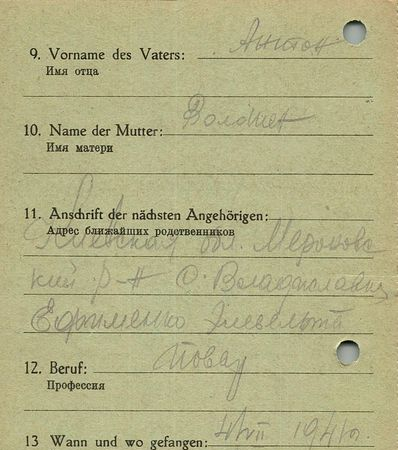 9. Vorname des Vaters: Антон
Имя отца
10. Name der Mutter:
Имя матери
11. Anschrift der nächsten Angehörigen:
Адрес ближайших родственников
Киевская обл.
кий р-н С. Владиславка
Ефименко
12. Beruf: Повар
Профессия
13 Wann und wo gefangen: 4/VII 1941г.